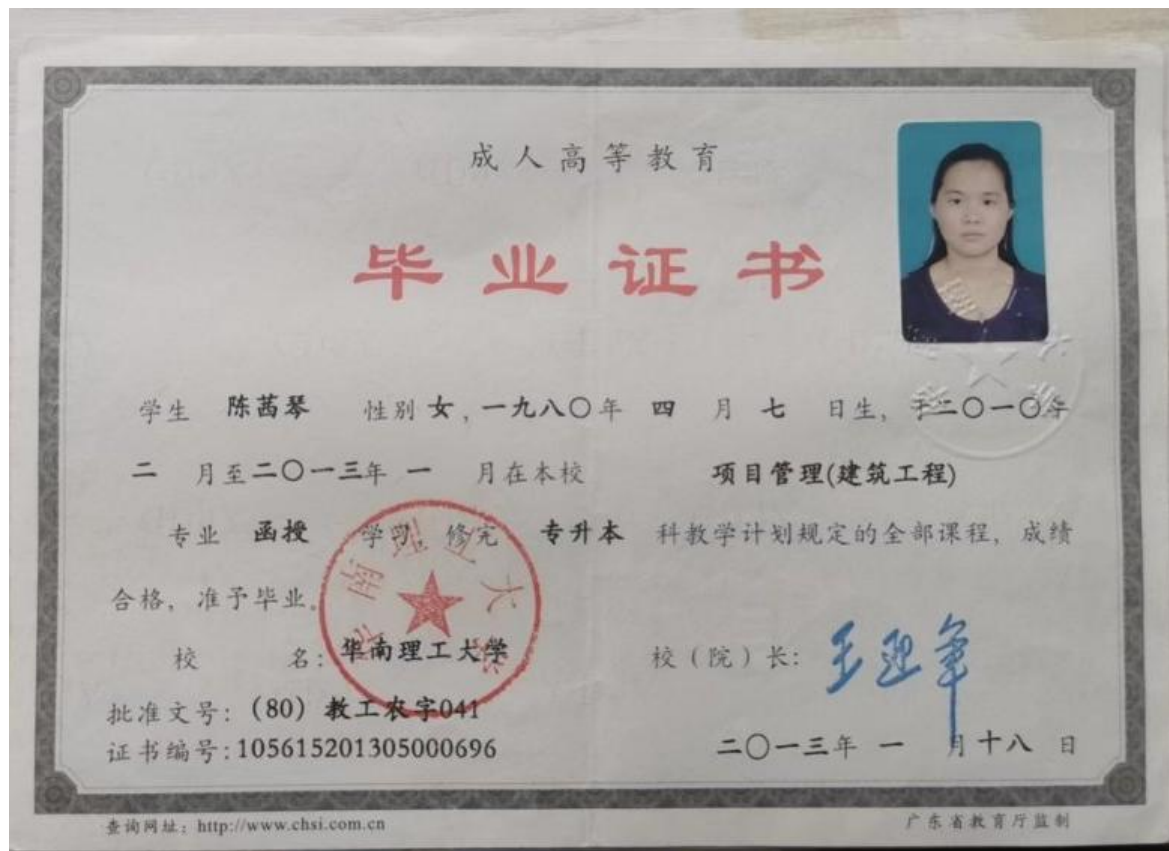 成人高等教育
毕业证书
学生 陈茜琴 性别 女, 一九八〇年 四 月 七 日生, 于二〇一〇年
二 月至二〇一三年 一 月在本校 项目管理(建筑工程)
专业 函授 学习, 修完 专升本 科教学计划规定的全部课程, 成绩
合格, 准予毕业。
校 名: 华南理工大学
校(院)长: 王迎军
批准文号: (80) 教工农字041
证书编号:105615201305000696
二〇一三年 一 月十八 日
查询网址: http://www.chsi.com.cn
广东省教育厅监制